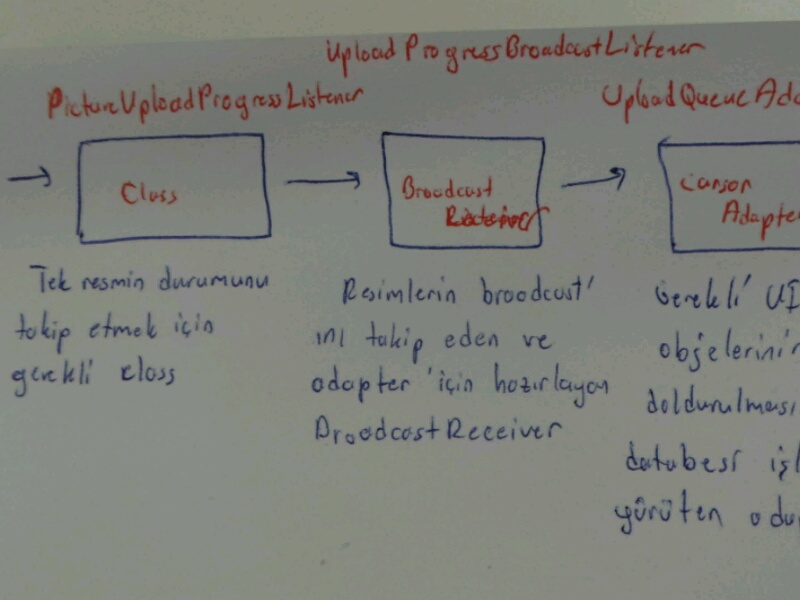 UploadProgressBroadcastListener
PictureUploadProgressListener
UploadQueueAda
Class
Broadcast
Receiver
Cursor
Adapter
Tek resmin durumunu
takip etmek için
gerekli class
Resimlerin broadcast'
ını takip eden ve
adapter 'için hazırlayan
BroadcastReceiver
Gerekli UI
objelerinin
doldurulması
databesi işl
yürüten adap